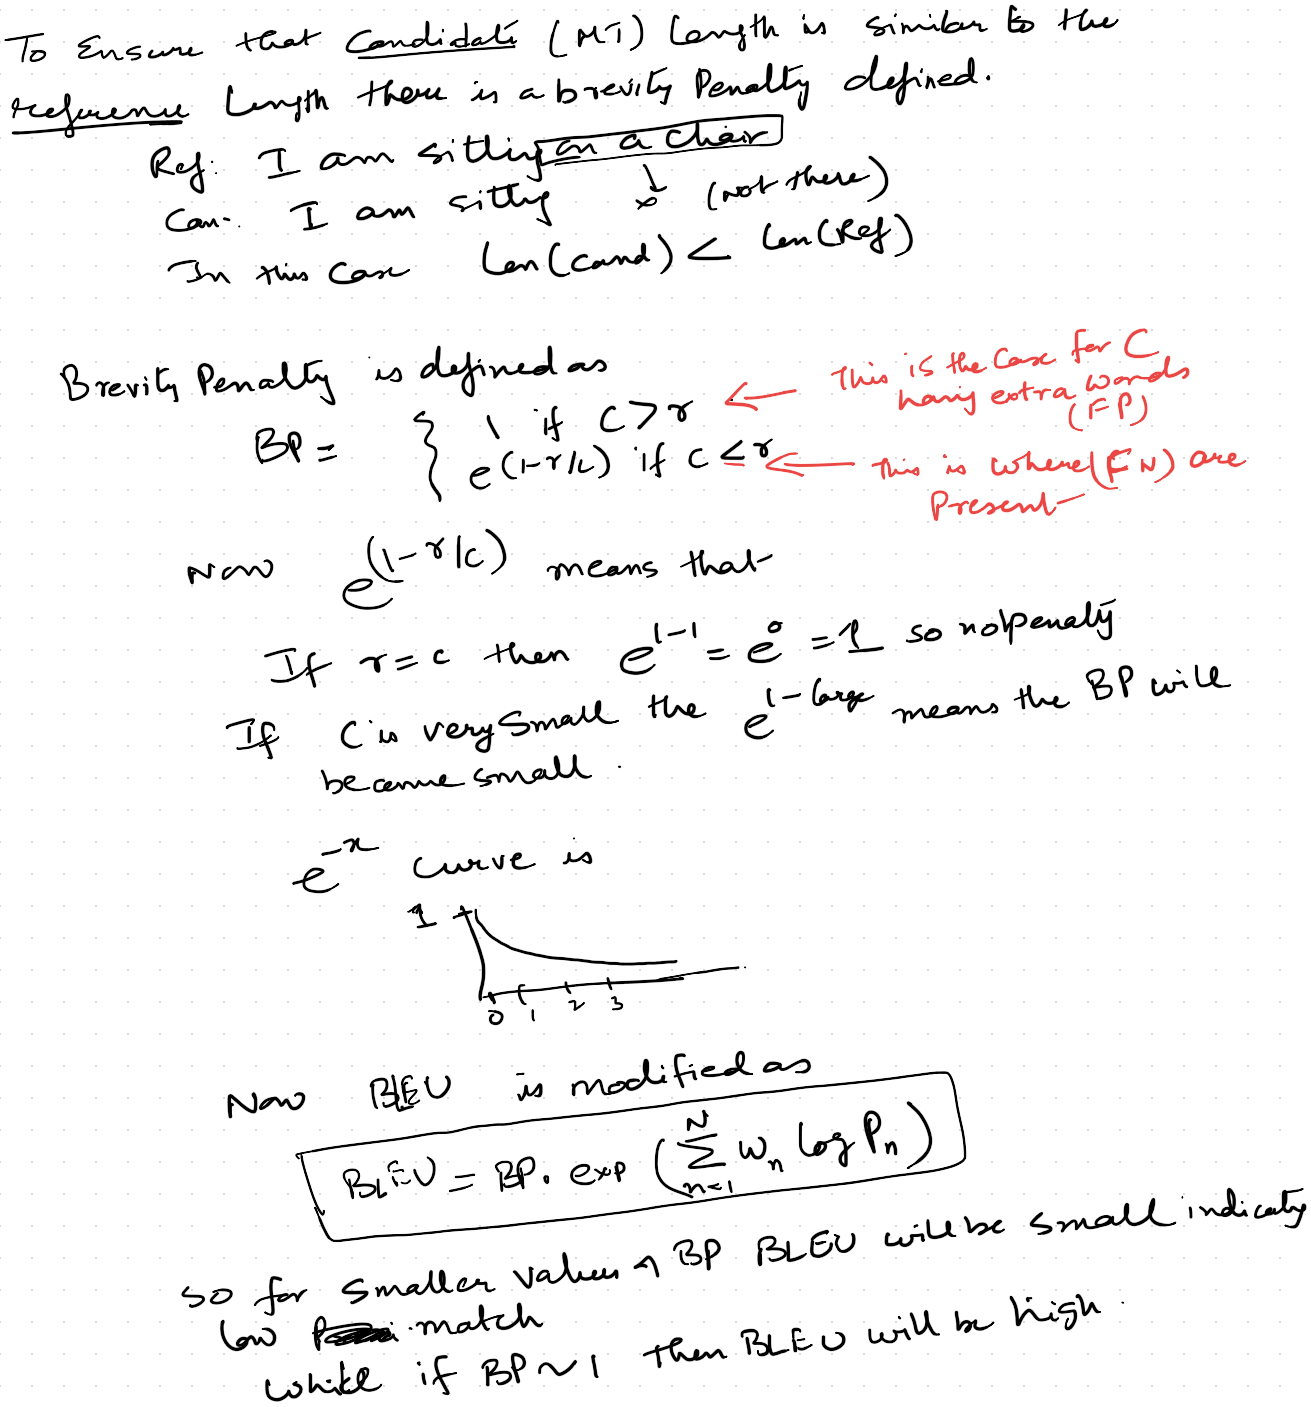 To Ensure that Candidate (MT) Length is similar to the
reference Length there is a brevity Penalty defined.
Ref: I am sitting on a chair
Can-. I am sittig (not there)
In this case Len(cand) < Len(Ref)
Brevity Penalty is defined as
This is the case for C
having extra words
(FP)
BP = { 1 if C > r
e^(1-r/c) if c ≤ r
This is where (FN) are
Present
Now e^(1-r/c) means that
If r = c then e^1-1 = e^0 = 1 so no penalty
If C is very small the e^1-large means the BP will
become small.
e^-x curve is
1
0 1 2 3
Now BLEU is modified as
BLEU = BP. exp (∑_{n=1}^{N} w_n log P_n)
So for smaller values of BP BLEU will be small indicatig
low match
while if BP ~ 1 then BLEU will be high.